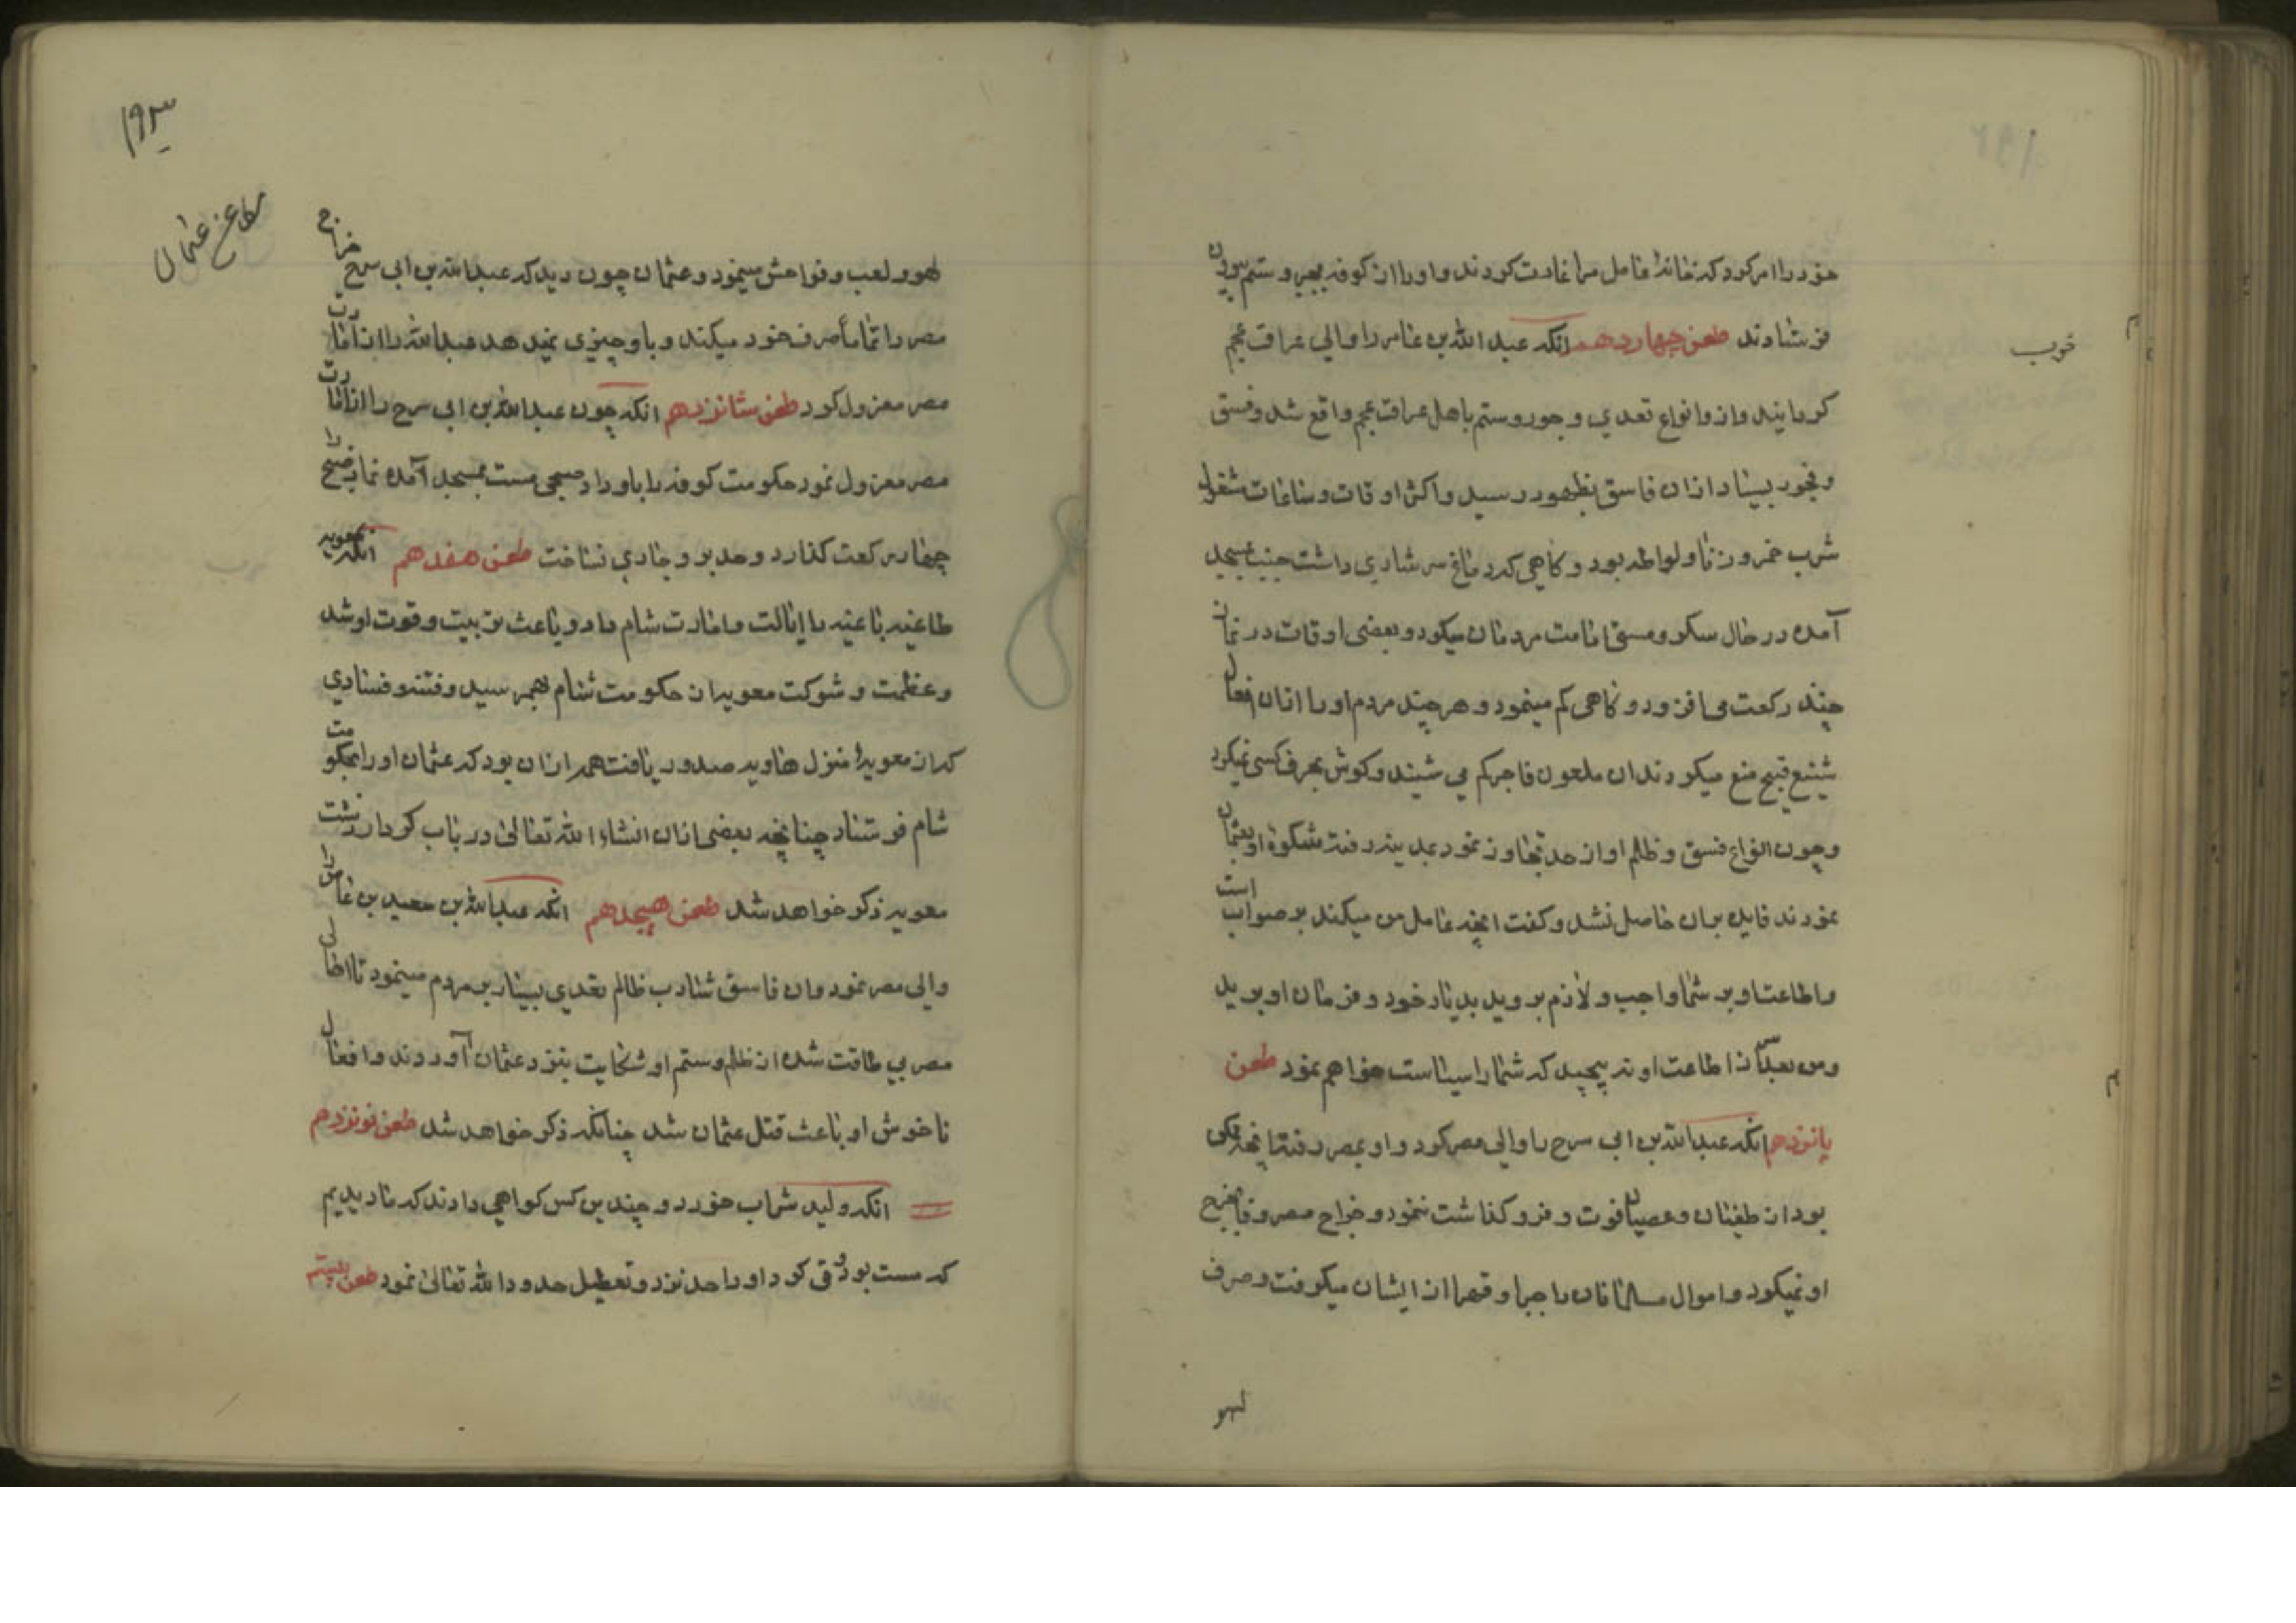 خود را امر کرد که خانهٔ عامل مرا غارت کردند و او را از کوفه بجبر و ستم بیرون
فرستادند طعن چهاردهم انکه عبد الله بن عامر را والی عراق عجم
کردانید و از و انواع تعدی و جور و ستم باهل عراق عجم واقع شد و فسق
و فجور بسیار ازان فاسق بظهور رسید و اکثر اوقات و ساعات مشغول
شرب خمر و زنا و لواطه بود و کاهی که دماغ سرشاری داشت جنب بمسجد
آمده در حال سکر و مستی امامت مردمان میکرد و بعضی اوقات در نماز
چند رکعت می افزود و کاهی کم مینمود و هر چند مردم او را ازان افعال
شنیع قبیح منع میکردند ان ملعون فاجر کم می شیند و کوش بحرف کسی نمیکرد
و چون انواع فسق و ظلم او از حد تجاوز نمود بمدینه رفته شکوهٔ او بعثمان
نمودند فایده بران حاصل نشد و کفت انچه عامل من میکند بر صوابست
و اطاعت او بر شما واجب و لازم بروید بدیار خود و فرمان او برید
و من بعد سر از اطاعت او نه پیچید که شما را سیاست خواهم نمود طعن
پانزدهم انکه عبد الله بن ابی سرح را والی مصر کرد و او بمصر رفته انچه ممکن
بود از طغیان و عصیان فوت و فرو کذاشت ننمود و خراج مصر وفا بخرج
او نمیکرد و اموال مسلمانان را جبرا و قهرا از ایشان میکرفت و صرف
لهو
خوب
۱۹۳
مطاعن عثمان
لهو و لعب و فواحش مینمود و عثمان چون دید که عبد الله بن ابی سرح خراج
مصر را تماماً صرف خود میکند و باو چیزی نمیدهد عبد الله را از امارت
مصر معزول کرد طعن شانزدهم انکه چون عبد الله بن ابی سرح را از امارت
مصر معزول نمود حکومت کوفه را باو داد صبحی مست بمسجد آمده نماز صبح را
چهار رکعت کذارد و حد بر و جاری نساخت طعن هفدهم انکه معویه
طاغیه باغیه را ایالت و امارت شام داد و باعث تربیت و قوت او شد
و عظمت و شوکت معویه از حکومت شام بهم رسید و فتنه و فسادی
که از معویهٔ منزل هاویه صدور یافت همه ازان بود که عثمان او را بحکومت
شام فرستاد چنانچه بعضی ازان انشاء الله تعالی در باب کردار زشت
معویه ذکر خواهد شد طعن هیجدهم انکه عبد الله بن سعید بن عاص را
والی مصر نمود و ان فاسق شارب ظالم تعدی بسیار بر مردم مینمود تا اهالی
مصر بی طاقت شده از ظلم و ستم او شکایت بنزد عثمان آوردند و افعال
ناخوش او باعث قتل عثمان شد چنانکه ذکر خواهد شد طعن نوزدهم
انکه ولید شراب خورد و چندین کس کواهی دادند که ما دیدیم
که مست بود و قی کرد او را حد نزد و تعطیل حدود الله تعالی نمود طعن بیستم